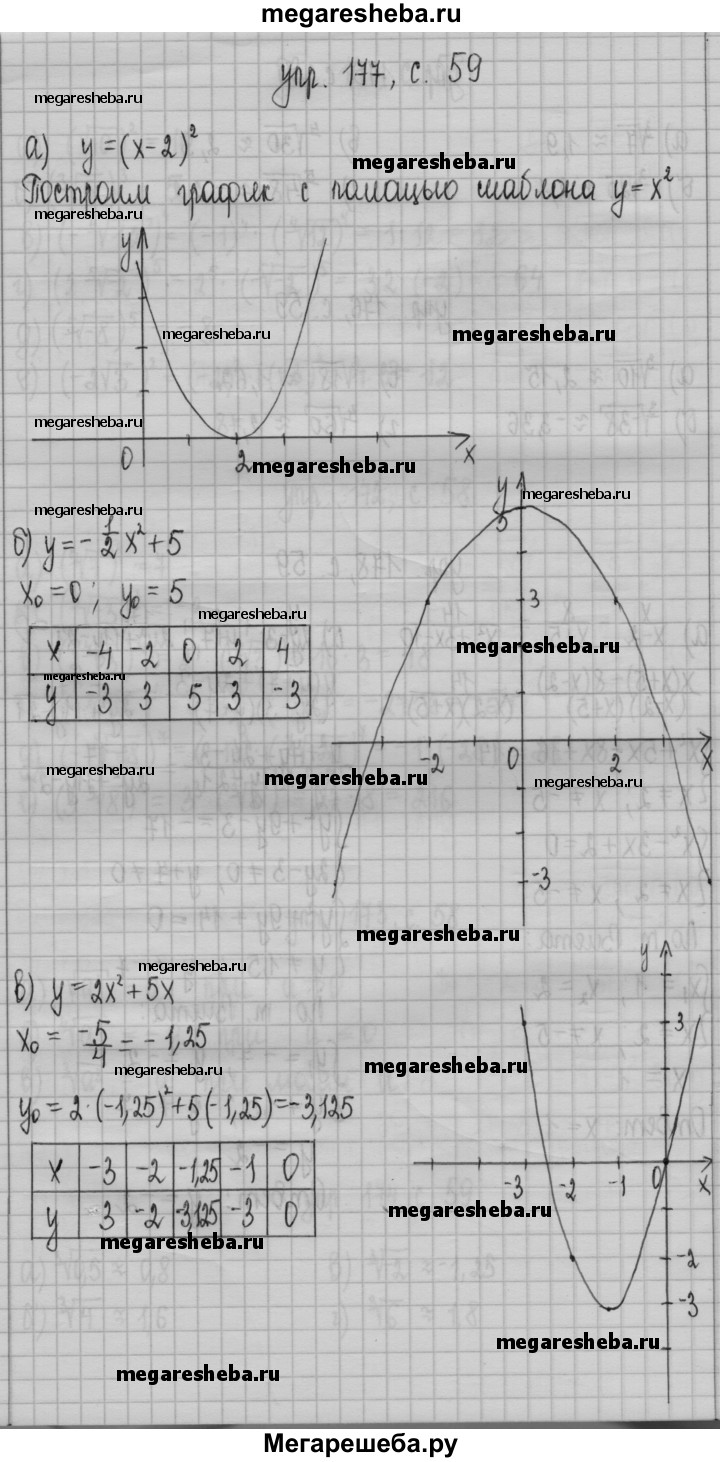 megaresheba.ru
упр. 177, с. 59
megaresheba.ru
а) y=(x-2)²
megaresheba.ru
Построим график с помощью шаблона y=x²
megaresheba.ru
y
megaresheba.ru
megaresheba.ru
megaresheba.ru
0 2 x
megaresheba.ru
y
megaresheba.ru
megaresheba.ru
5
б) y=-1/2 x²+5
x₀=0; y₀=5
3
megaresheba.ru
x -4 -2 0 2 4
megaresheba.ru
megaresheba.ru
y -3 3 5 3 -3
-2 0 2 x
megaresheba.ru
megaresheba.ru
megaresheba.ru
-3
megaresheba.ru
y
megaresheba.ru
в) y=2x²+5x
3
x₀=-5/4=-1,25
megaresheba.ru
megaresheba.ru
y₀=2·(-1,25)²+5(-1,25)=-3,125
x -3 -2 -1,25 -1 0
-3 -2 -1 0 x
y 3 -2 -3,125 -3 0
megaresheba.ru
megaresheba.ru
-2
-3
megaresheba.ru
megaresheba.ru
Мегарешеба.ру